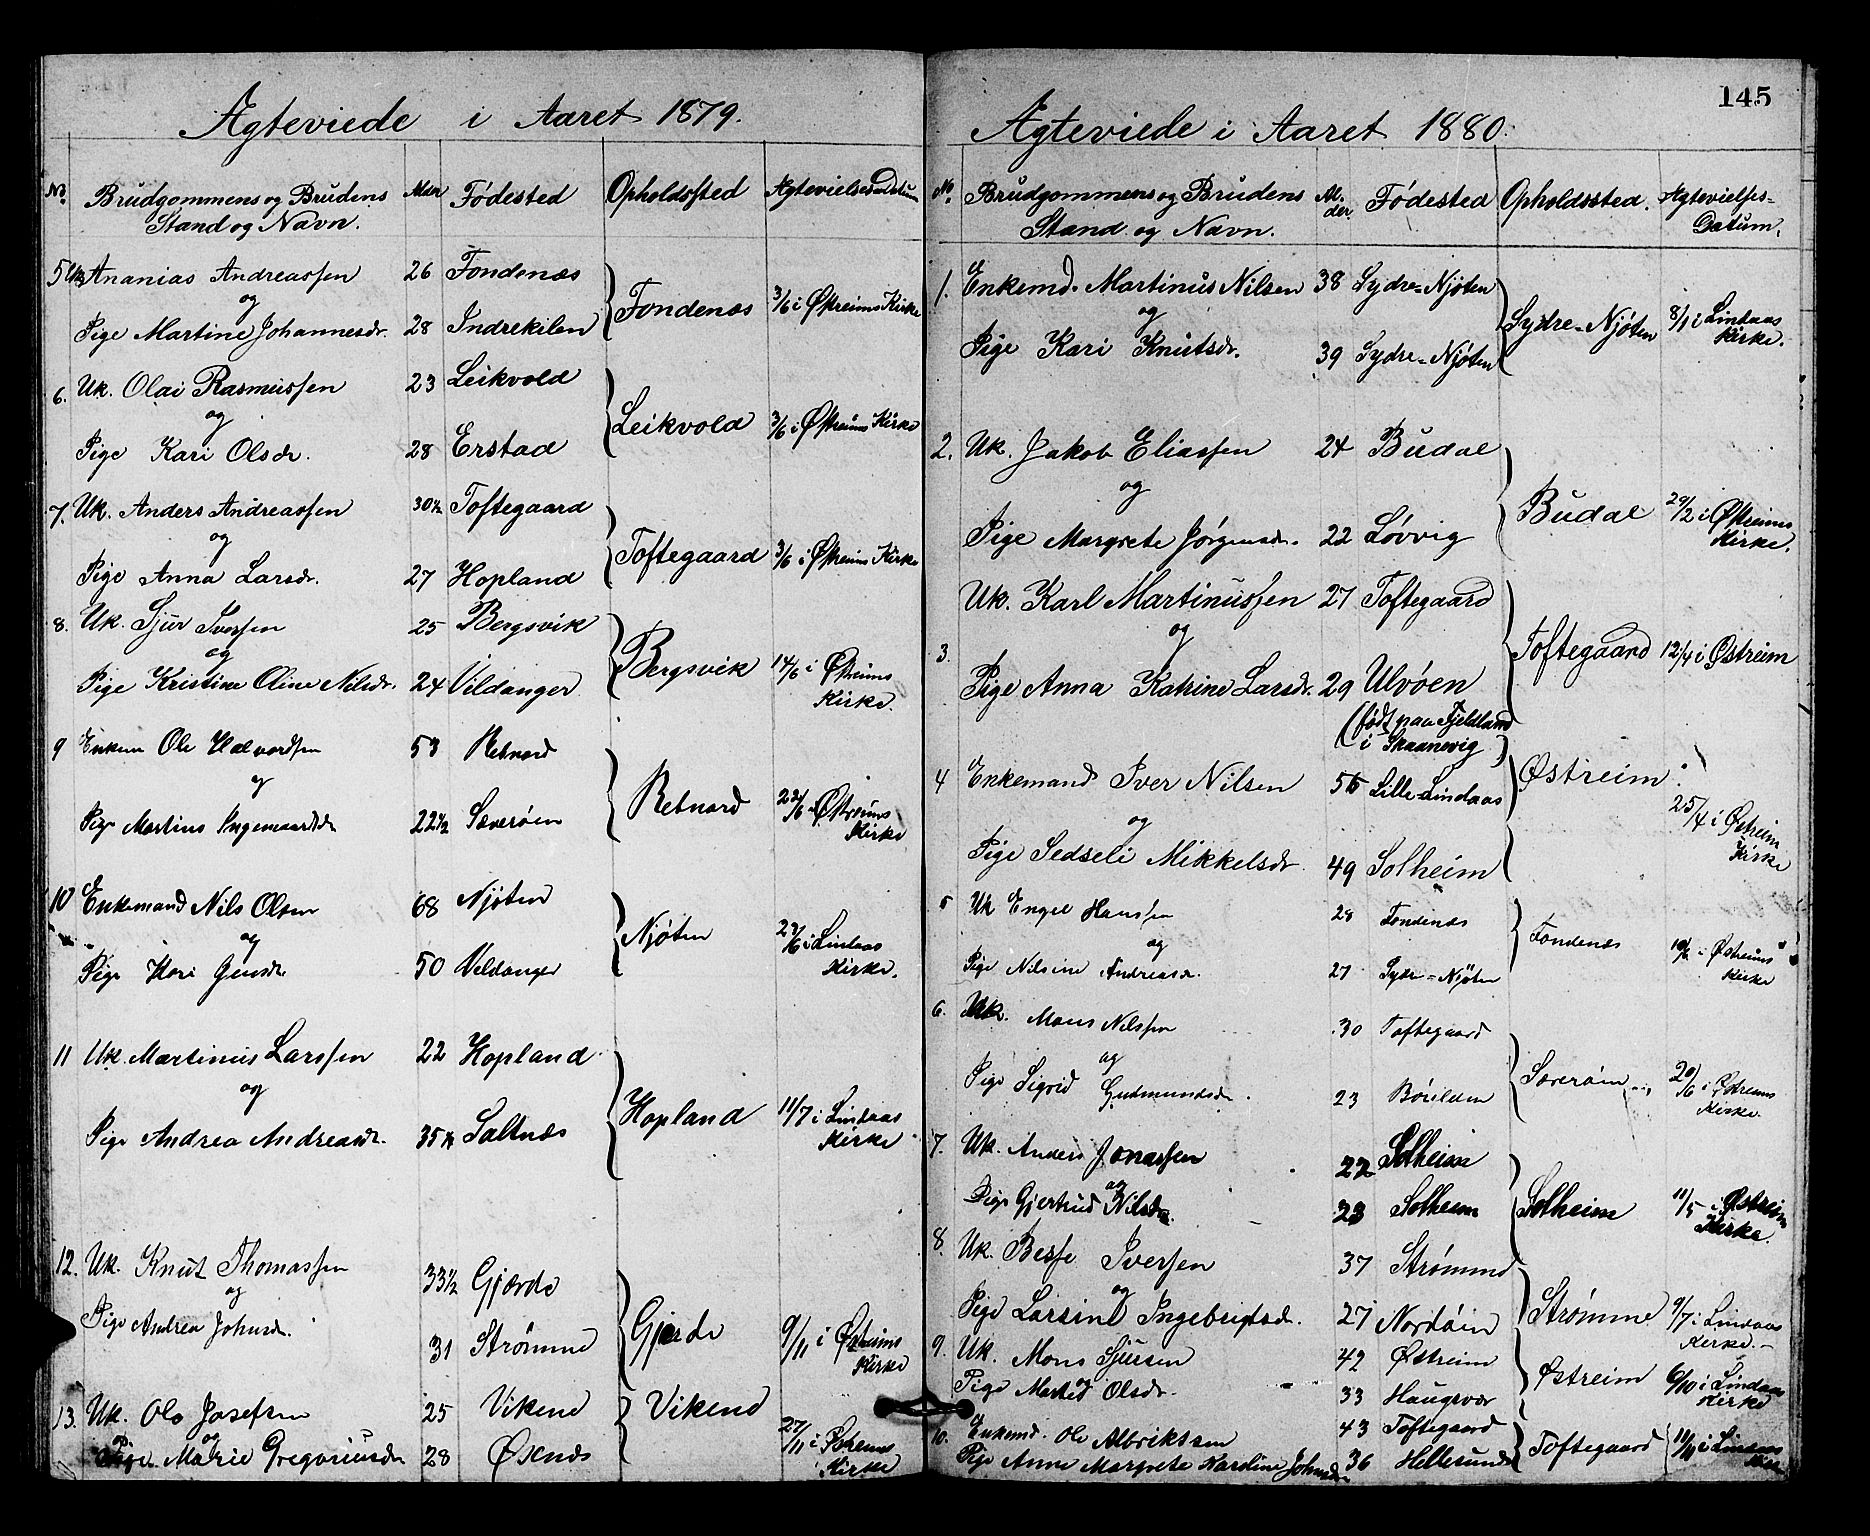 Agteviede i Aaret 1879.
No. Brudgommens og Brudens Stand og Navn. Alder Fødested Opholdssted Agtevielses Datum
5 Uk. Ananias Andreassen 26 Fondenæs
og Fondenæs 3/6 i Østreims Kirke
Pige Martine Johannesdr. 28 Indrekilen
6. Uk. Olai Rasmussen 23 Leikvold
og Leikvold 3/6 i Østreims Kirke
Pige Kari Olsdr. 28 Erstad
7. Uk. Anders Andreassen 30½ Toftegaard
og Toftegaard 3/6 i Østreims Kirke
Pige Anna Larsdr. 27 Hopland
8. Uk. Sjur Iversen 25 Bergsvik
og Bergsvik 14/6 i Østreims Kirke.
Pige Kristine Oline Nilsdr. 24 Vildanger
9 Enkem Ole Halvordsen 53 Retnord
og Retnord 22/6 i Østreims Kirke
Pige Martine Ingemardsdr 22½ Sæverøen
10 Enkemand Nils Olsen 68 Njøten
og Njøten 23/6 i Lindaas Kirke.
Pige Kari Jensdr. 50 Vildanger
11 Uk. Martinus Larssen 22 Hopland
og Hopland 11/7 i Lindaas Kirke
Pige Andrea Andreasdr. 35½ Saltnæs
12. Uk. Knut Thomassen 33½ Gjærde
og Gjerde 9/11 i Østreims Kirke
Pige Andrea Johnsdr. 31 Strømme
13. Uk. Ole Josefsen 25 Vikene
og Vikene 27/11 i Østreims Kirke
Pige Marie Gregoriusdr 28 Øxenæs
145
Agteviede i Aaret 1880.
No. Brudgommens og Brudens Stand og Navn. Alder Fødested Opholdssted. Agtevielses-Datum.
1. Enkemd. Martinus Nilsen 38 Sydre-Njøten
og Sydre-Njøten 8/1 i Lindaas Kirke.
Pige Kari Knutsdr. 39 Sydre-Njøten
2. Uk. Jakob Eliassen 24 Budal
og Budal 29/2 i Østreims Kirke.
Pige Margrete Jørgensdr. 22 Løvvig
Uk. Karl Martinussen 27 Toftegaard
3. og Toftegaard 12/4 i Østreim
Pige Anna Katrine Larsdr. 29 Ulvøen
(født paa Fjeldland
i Skaanevig)
4 Enkemand Iver Nilsen 56 Lille-Lindaas Østreim
og 25/4 i Østreim Kirke
Pige Sedseli Mikkelsdr 49 Solheim
5 Uk Engel Hanssen 28 Fondenæs
og Fondenæs 10/6 i Østreims Kirke
Pige Nilsine Andreasdr. 27 Sydre-Njøten
6. Uk. Mons Nilssen 30 Toftegaard
og Sæverøen 20/6 i Østreims Kirke.
Pige Sigrid Gudmundsdr. 23 Børilden
7. Uk. Anders Jonassen 22 Solheim
og Solheim 11/5 i Østreim Kirke.
Pige Gjertrud Nilsdr. 23 Solheim
8. Uk. Besse Iversen 37 Strømme
og Strømme 9/7 i Lindaas Kirke.
Pige Larsine Ingebrigtsdr. 27 Nordøen
9. Uk. Mons Sjursen 42 Østreim
og Østreim 6/10 i Lindaas Kirke
Pige Marted Olsdr. 33 Haugsvær
10. Enkemd. Ole Albriktsen 43 Toftegaard
Toftegaard 11/11 i Lindaas Kirke
Pige Anne Margrete Karoline Johnsdr 36 Hellesund